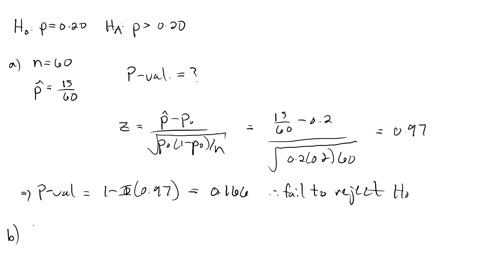 H₀: p = 0.20 H_A: p > 0.20
a) n = 60
p̂ = 15/60
P-val. = ?
z = (p̂ - p₀)/√(p₀(1-p₀)/n) = (15/60 - 0.2)/√(0.2(0.2)60) = 0.97
⇒ P-val = 1 - Φ(0.97) = 0.166 ∴ fail to reject H₀
b)